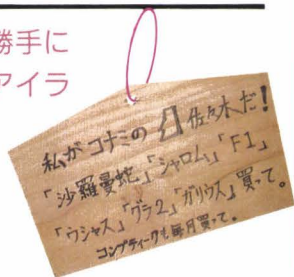 勝手に
アイラ
私がコナミの 佐々木だ!
「沙羅曼蛇」「シャロム」「F1」
「ウシャス」「グラ2」「ガリウス」買って。
コンプティークも毎月買って。